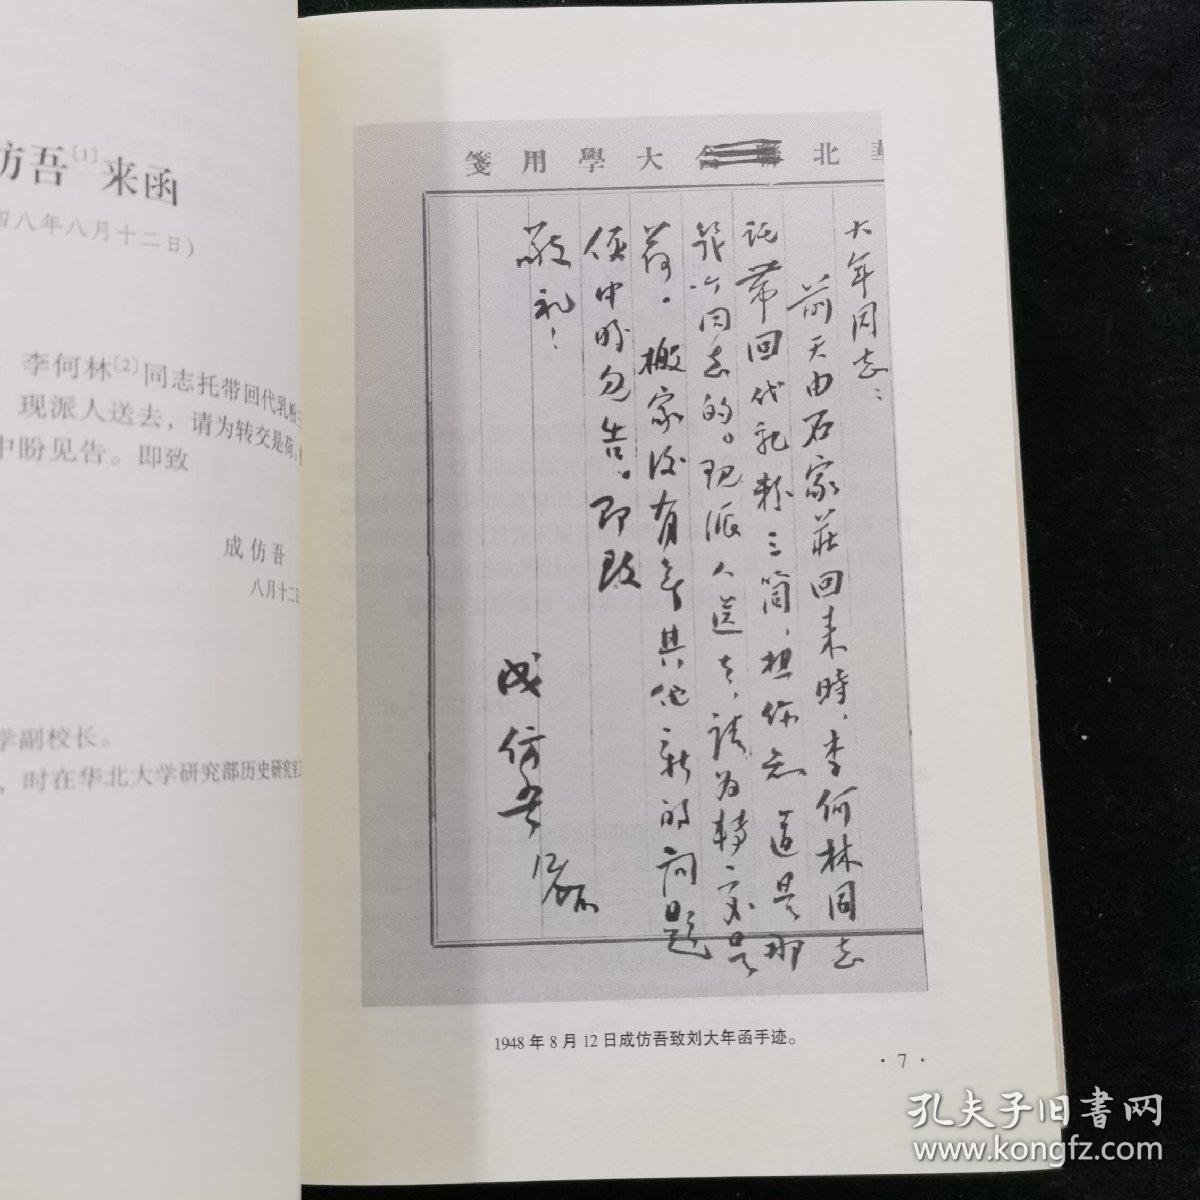 仿吾[1]来函
四八年八月十二日)
李何林[2]同志托带回代乳粉三
现派人送去，请为转交是荷。
中盼见告。即致
成仿吾
八月十二日
学副校长。
，时在华北大学研究部历史研究室
華北聯合大學用箋
大年同志：
前天由石家莊回来時，李何林同志
託带回代乳粉三筒，想你知道是那
几个同志的。现派人送去，请为转交是
荷。搬家后有无其他新的问题
便中盼见告。即致
敬礼！
成仿吾
1948年8月12日成仿吾致刘大年函手迹。
·7·
孔夫子旧书网
www.kongfz.com